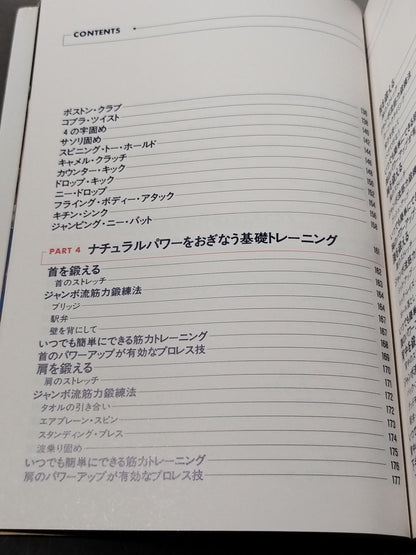 CONTENTS
ボストン・クラブ
コブラ・ツイスト
4の字固め
サソリ固め
スピニング・トー・ホールド
キャメル・クラッチ
カウンター・キック
ドロップ・キック
ニー・ドロップ
フライング・ボディー・アタック
キチン・シンク
ジャンピング・ニー・パット
PART 4 ナチュラルパワーをおぎなう基礎トレーニング 161
首を鍛える 162
首のストレッチ
ジャンボ流筋力鍛練法
ブリッジ
駅弁
壁を背にして
いつでも簡単にできる筋力トレーニング 168
首のパワーアップが有効なプロレス技 169
肩を鍛える 170
肩のストレッチ 171
ジャンボ流筋力鍛練法 172
タオルの引き合い 172
エアプレーン・スピン 173
スタンディング・プレス 174
波乗り固め 175
いつでも簡単にできる筋力トレーニング 176
肩のパワーアップが有効なプロレス技 177